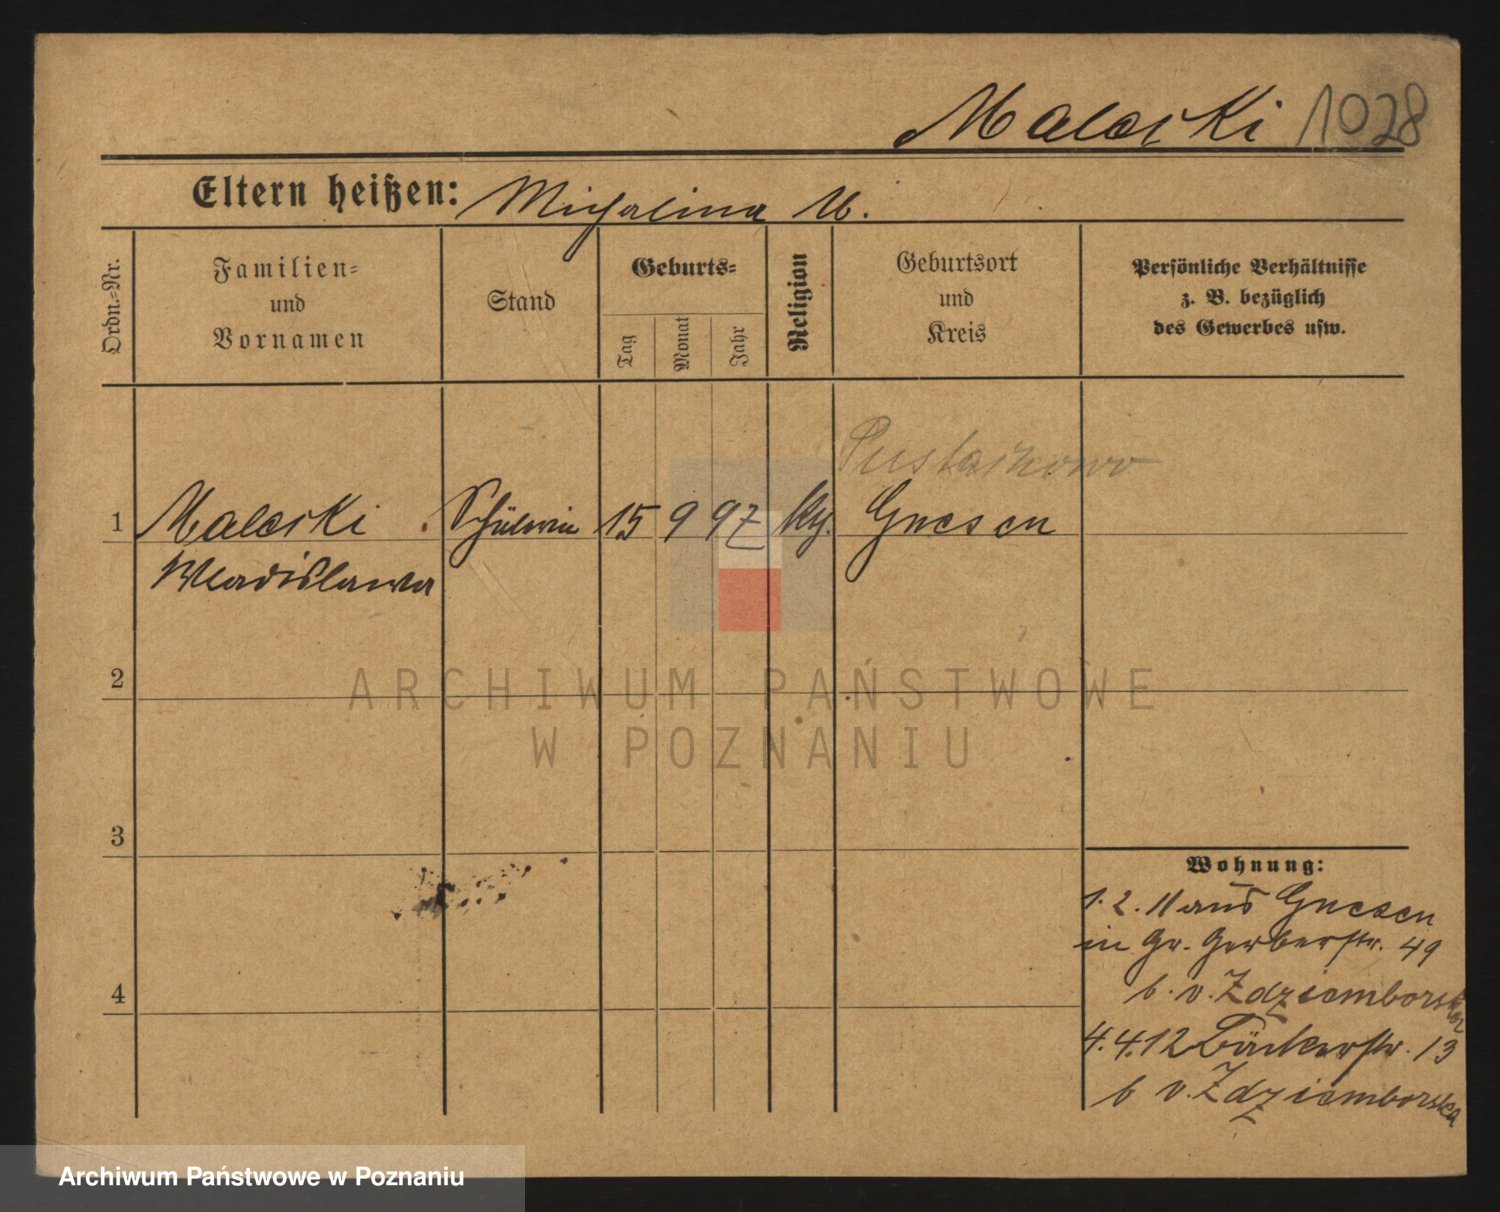 Maleski 1028
Eltern heißen: Michalina U.
Ordn.=Nr.
Familien=
und
Vornamen
Stand
Geburts=
Tag
Monat
Jahr
Religion
Geburtsort
und
Kreis
Persönliche Verhältnisse
z. B. bezüglich
des Gewerbes usw.
Pustachowo
1 Maleski Schülerin 15 9 97 Gnesen
Wladislawa
2
ARCHIWUM PAŃSTWOWE
W POZNANIU
3
Wohnung:
1. 2. 11 aus Gnesen
in Gr. Gerberstr. 49
b. v. Zdziemborska
4
4. 4. 12 Bäckerstr. 13
b v. Zdziemborska
Archiwum Państwowe w Poznaniu